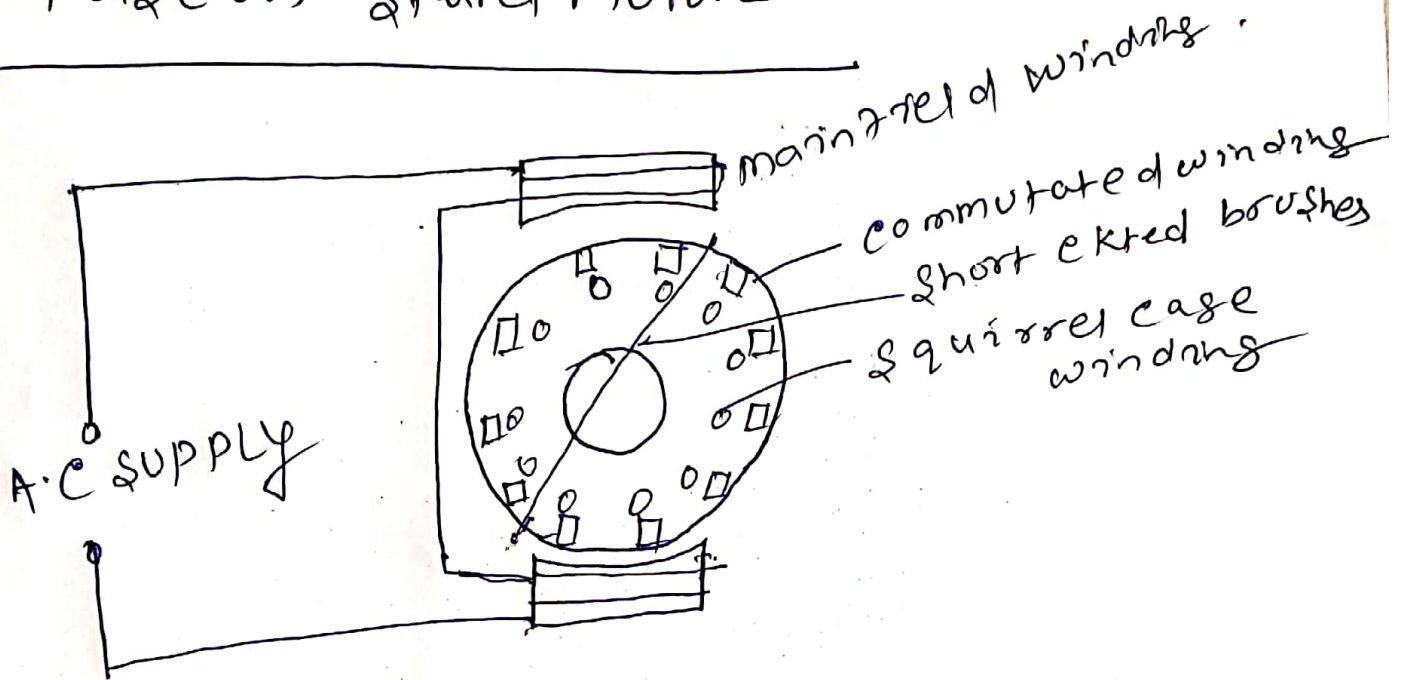 main field winding.
commutated winding
short ckted brushes
squirrel cage
winding
A.C SUPPLY